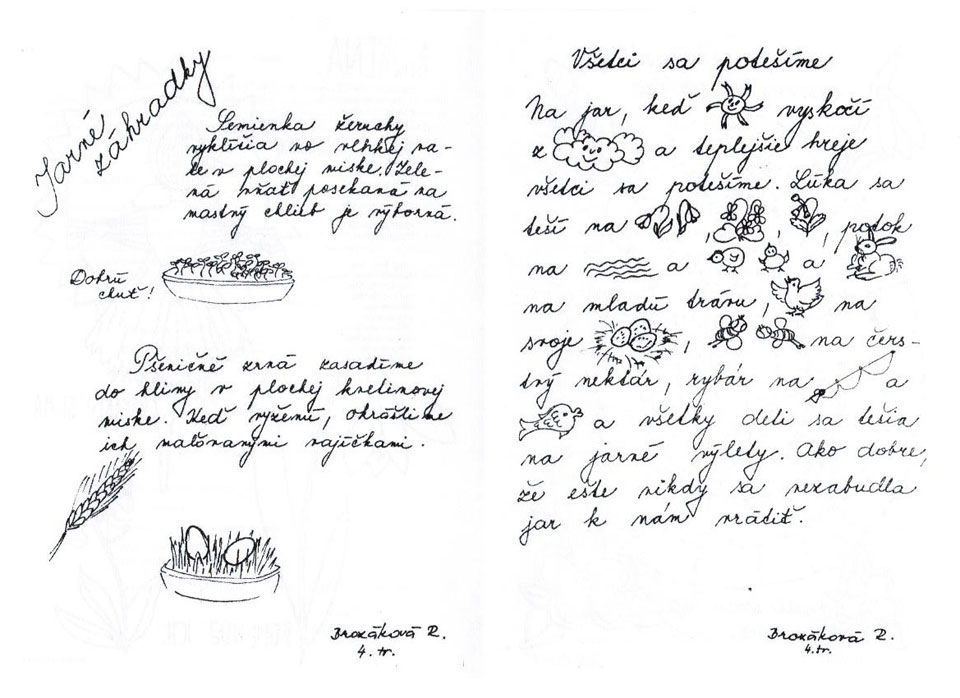 Jarné
záhradky
Semienka žeruchy
vyklíčia vo vlhkej va-
te v plochej miske. Zele-
ná vňať posekaná na
mastný chlieb je výborná.
Dobrú
chuť!
Pšeničné zrná zasadíme
do hliny v plochej kvetinovej
miske. Keď vyženú, okrášlime
ich maľovanými vajíčkami.
Brozáková R.
4. tr.
Všetci sa potešíme
Na jar, keď vyskočí
z a teplejšie hreje
všetci sa potešíme. Lúka sa
teší na , , , potok
na a a
na mladú trávu, na
svoje , na čers-
tvý nektár, rybár na a
a všetky deti sa tešia
na jarné výlety. Ako dobre,
že ešte nikdy sa nezabudla
jar k nám vrátiť.
Brozáková R.
4. tr.